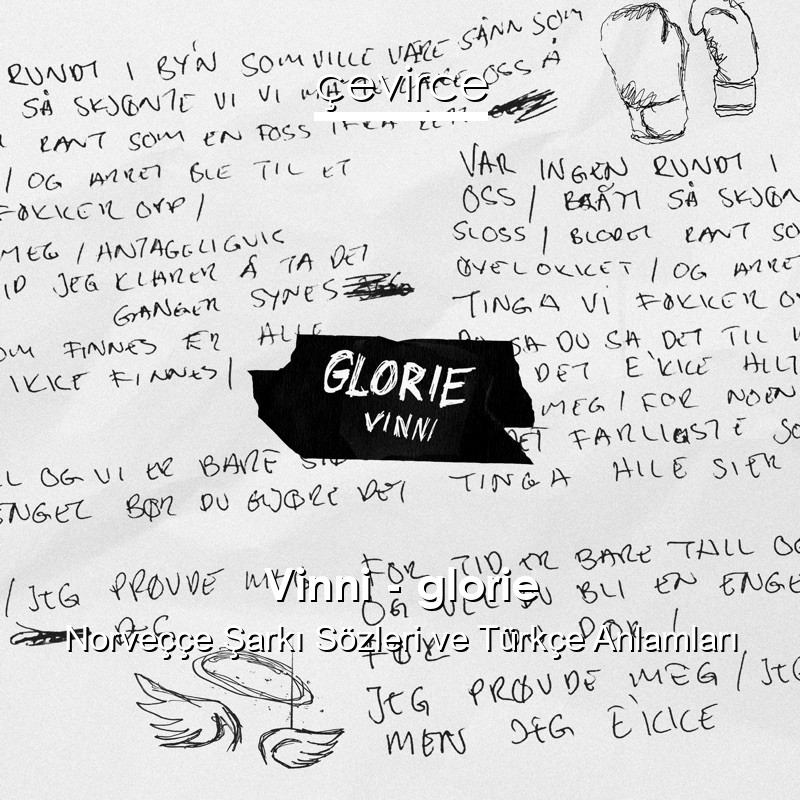 RUNDT I BY'N SOM VILLE VÆRE SÅNN SOM
SÅ SKJØNTE VI VI OSS Å
çevirce
RANT SOM EN FOSS IFRA
/ OG ARRET BLE TIL ET
FØKKER OPP /
VAR INGEN RUNDT I
OSS / SÅ SKJØN
SLOSS / BLODET RANT SO
ØYELOKKET / OG ARRE
TINGA VI FØKKER O
MEG / ANTAGELIGVIS
ID JEG KLARER Å TA DET
GANGER SYNES
OM FINNES ER ALLE
IKKE FINNES /
SA DU SA DET TIL
DET E'KKE ALLT
MEG / FOR NOEN
DET FARLIGSTE SO
TINGA ALLE SIER
GLORIE
VINNI
LL OG VI ER BARE
ENGEL BØR DU GJØRE DET
/ JEG PRØVDE MEG
FOR TID ER BARE TALL OG
OG VIL DU BLI EN ENGE
FØR DU DØR /
JEG PRØVDE MEG / JEG
MEN JEG E'KKE
Vinni - glorie
Norveççe Şarkı Sözleri ve Türkçe Anlamları